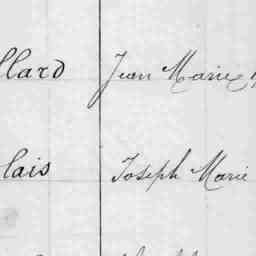 llard Jean Marie
lais Joseph Marie